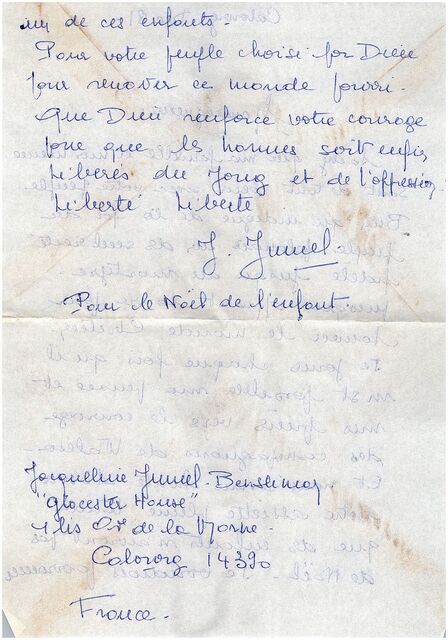 un de ces enfants.
Pour votre peuple choisi par Dieu
pour renover ce monde pourri.
Que Dieu renforce votre courage
pour que les hommes soit enfin
Liberés du Joug et de l'oppression
Liberté Liberté
J. Jumel
Pour le Noël de l'enfant.
Jacqueline Jumel-
"Glocester House"
1 bis de la Morne.
Cabourg 14390
France.